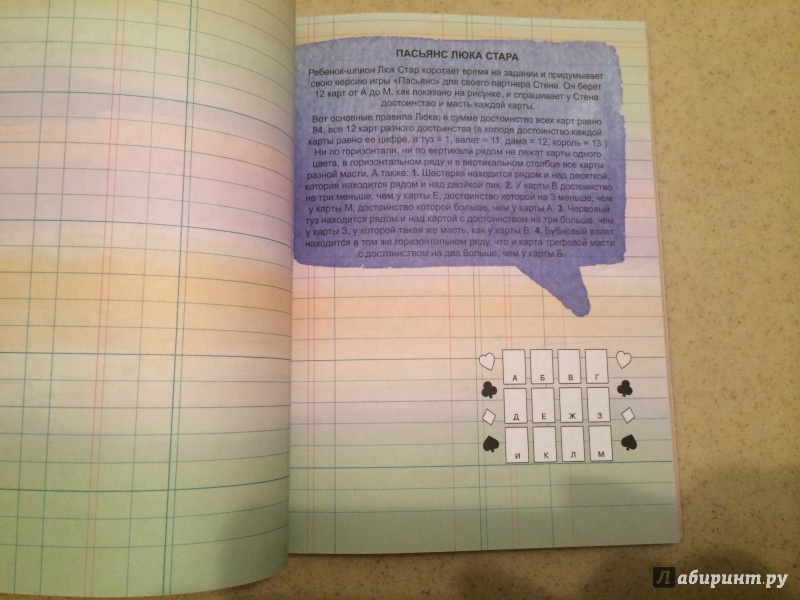 ПАСЬЯНС ЛЮКА СТАРА
Ребенок-шпион Люк Стар коротает время на задании и придумывает
свою версию игры «Пасьянс» для своего партнера Стена. Он берет
12 карт от А до М, как показано на рисунке, и спрашивает у Стена
достоинство и масть каждой карты.
Вот основные правила Люка: в сумме достоинство всех карт равно
84, все 12 карт разного достоинства (в колоде достоинство каждой
карты равно ее цифре, а туз = 1, валет = 11, дама = 12, король = 13.)
Ни по горизонтали, ни по вертикали рядом не лежат карты одного
цвета, в горизонтальном ряду и в вертикальном столбце все карты
разной масти. А также: 1. Шестерка находится рядом и над десяткой,
которая находится рядом и над двойкой пик. 2. У карты В достоинство
на три меньше, чем у карты Е, достоинство которой на 3 меньше, чем
у карты М, достоинство которой больше, чем у карты А. 3. Червовый
туз находится рядом и над картой с достоинством на три больше, чем
у карты З, у которой такая же масть, как у карты В. 4. Бубновый валет
находится в том же горизонтальном ряду, что и карта трефовой масти
с достоинством на два больше, чем у карты Б.
А Б В Г
Д Е Ж З
И К Л М
Лабиринт.ру